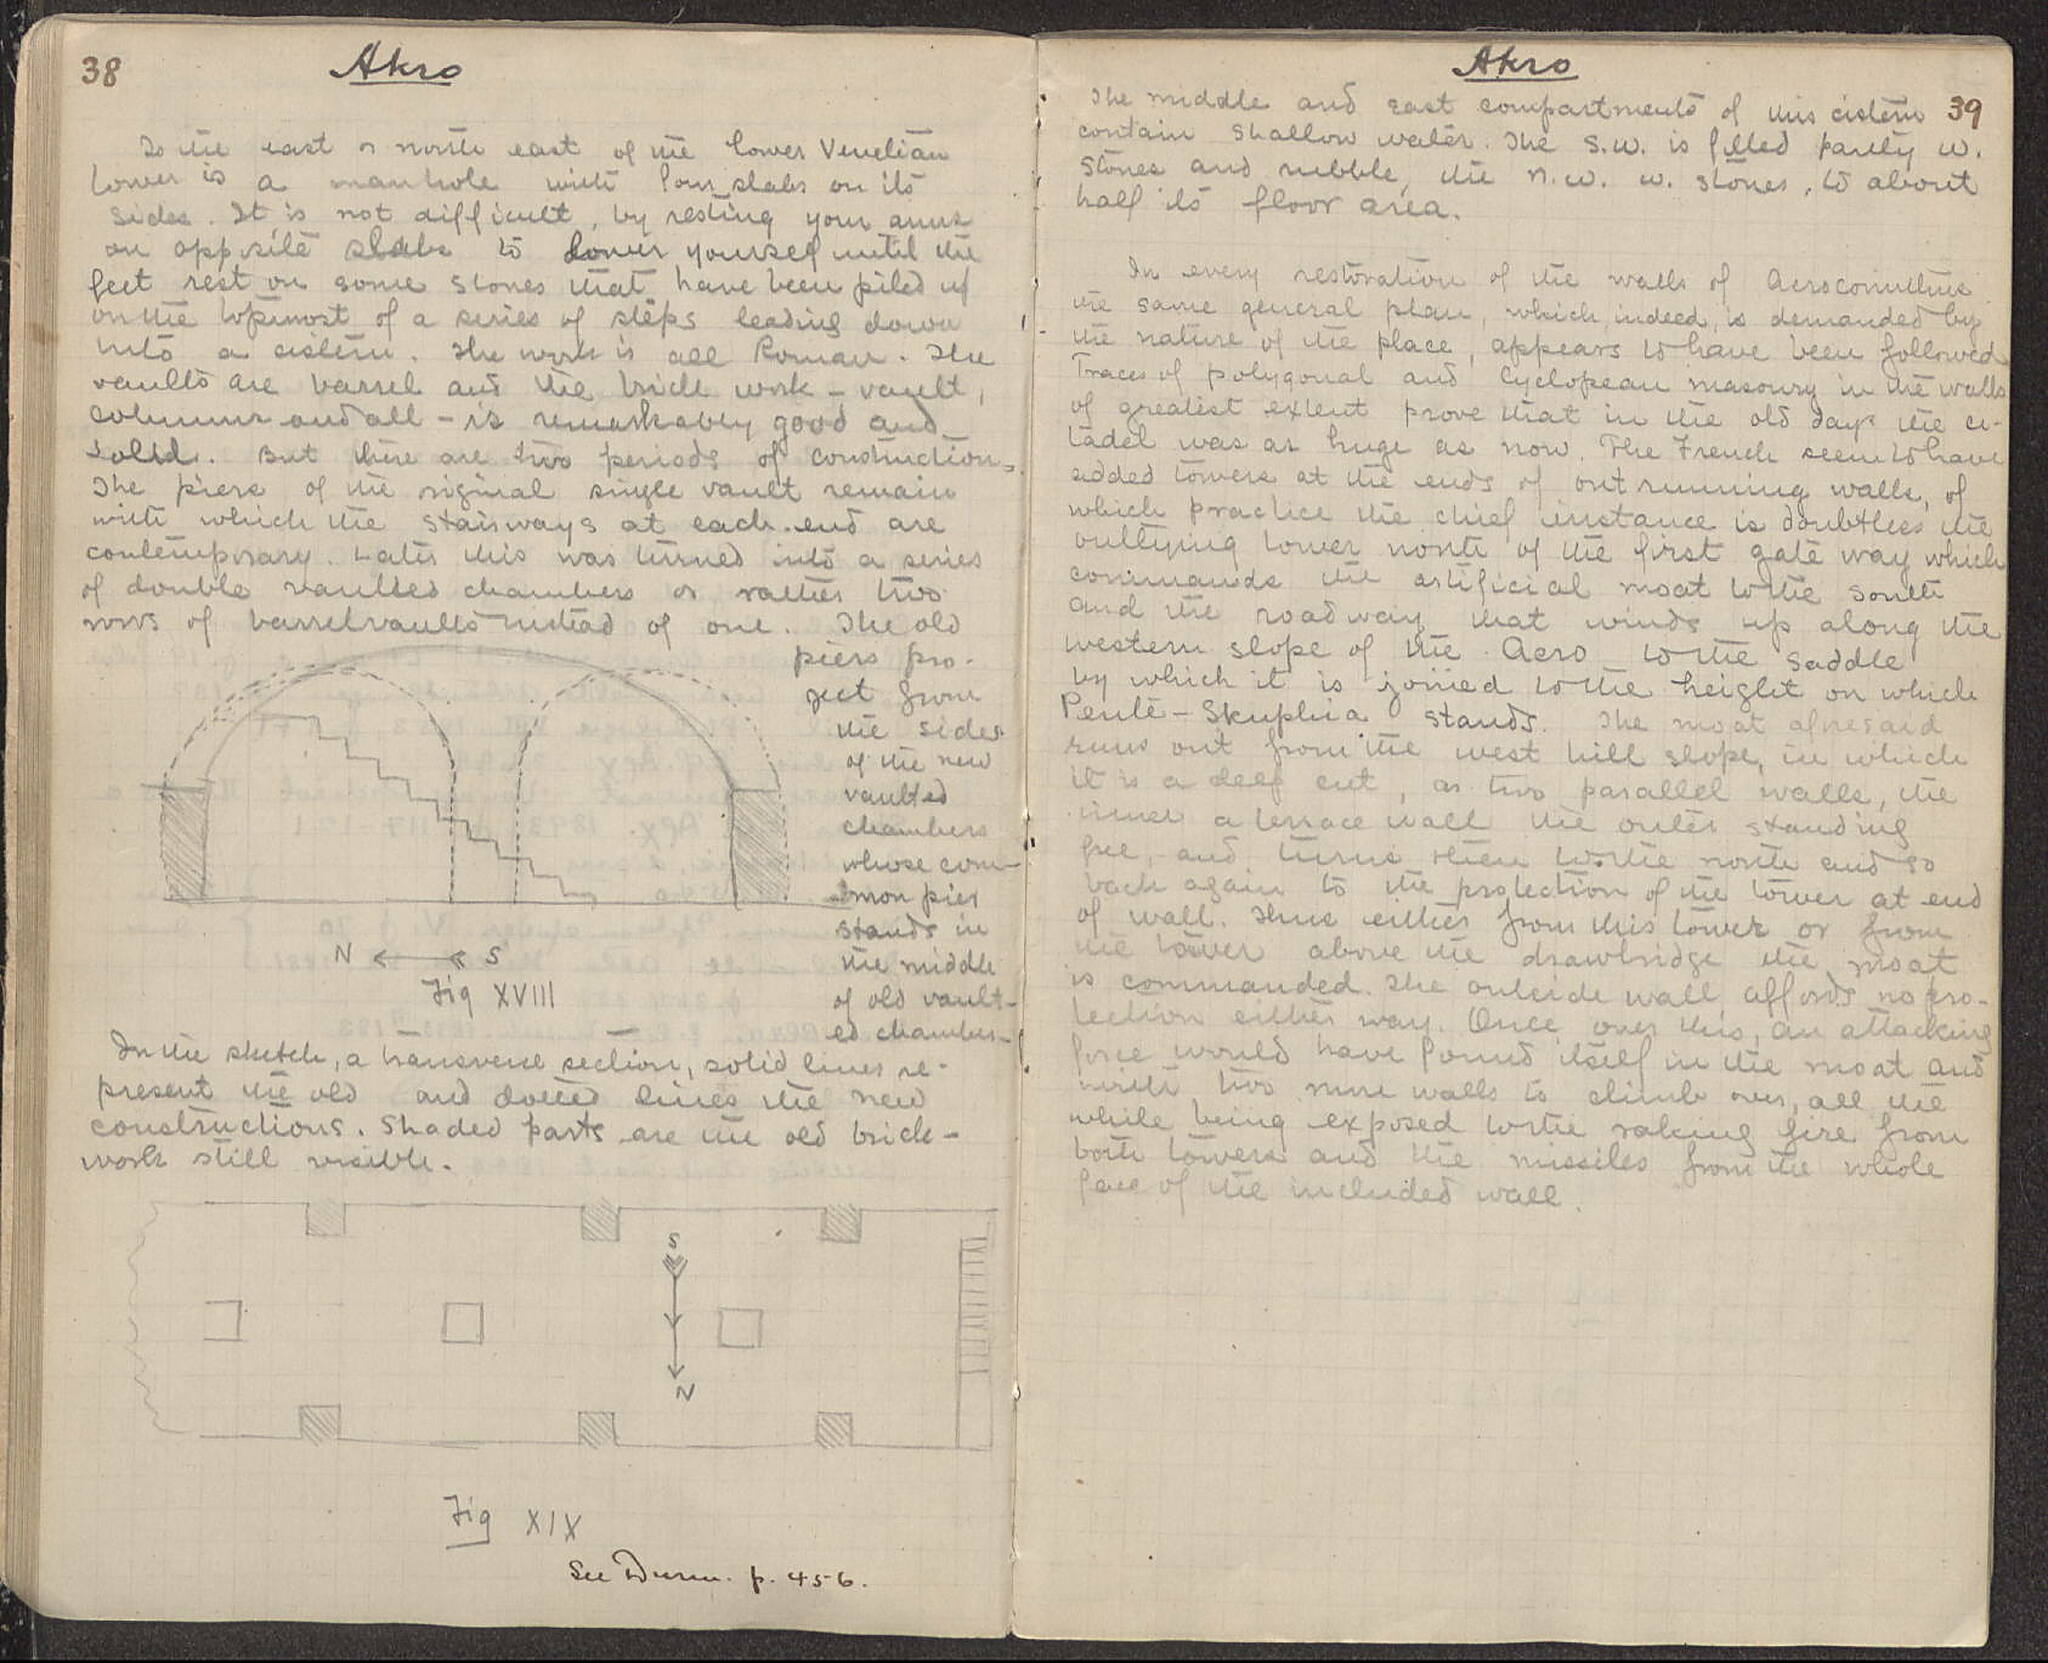 38
Akro
To the east or north east of the lower Venetian
tower is a manhole with four slabs on its
sides. It is not difficult, by resting your arms
on opposite slabs to lower yourself until the
feet rest on some stones that have been piled up
on the topmost of a series of steps leading down
into a cistern. The work is all Roman. The
vaults are barrel and the brick work – vault,
columns and all – is remarkably good and
solid. But there are two periods of construction.
The piers of the original single vault remain
with which the stairways at each end are
contemporary. Later this was turned into a series
of double vaulted chambers or rather two
rows of barrel vaults instead of one. The old
piers pro-
ject from
the sides
of the new
vaulted
chambers
whose com-
mon pier
stands in
the middle
of old vault-
ed chamber.
N S
Fig XVIII
In the sketch, a transverse section, solid lines re-
present the old and dotted lines the new
constructions. Shaded parts are the old brick-
work still visible.
S
N
Fig XIX
See Durm. p. 456.
Akro
39
The middle and east compartments of this cistern
contain shallow water. The S.W. is filled partly w.
stones and rubble, the N.W. w. stones, to about
half its floor area.
In every restoration of the walls of Acrocorinthus
the same general plan, which, indeed, is demanded by
the nature of the place, appears to have been followed
Traces of polygonal and Cyclopean masonry in the walls
of greatest extent prove that in the old days the ci-
tadel was as huge as now. The French seem to have
added towers at the ends of outrunning walls, of
which practice the chief instance is doubtless the
outlying tower north of the first gate way which
commands the artificial moat to the south
and the roadway that winds up along the
western slope of the Acro to the saddle
by which it is joined to the height on which
Pente-Skuphia stands. The moat aforesaid
runs out from the west hill slope, in which
it is a deep cut, as two parallel walls, the
inner a terrace wall the outer standing
free, and turns then to the north and so
back again to the protection of the tower at end
of wall. Thus either from this tower or from
the tower above the drawbridge the moat
is commanded. The outside wall affords no pro-
tection either way. Once over this, an attacking
force would have found itself in the moat and
with two more walls to climb over, all the
while being exposed to the raking fire from
both towers and the missiles from the whole
face of the included wall.